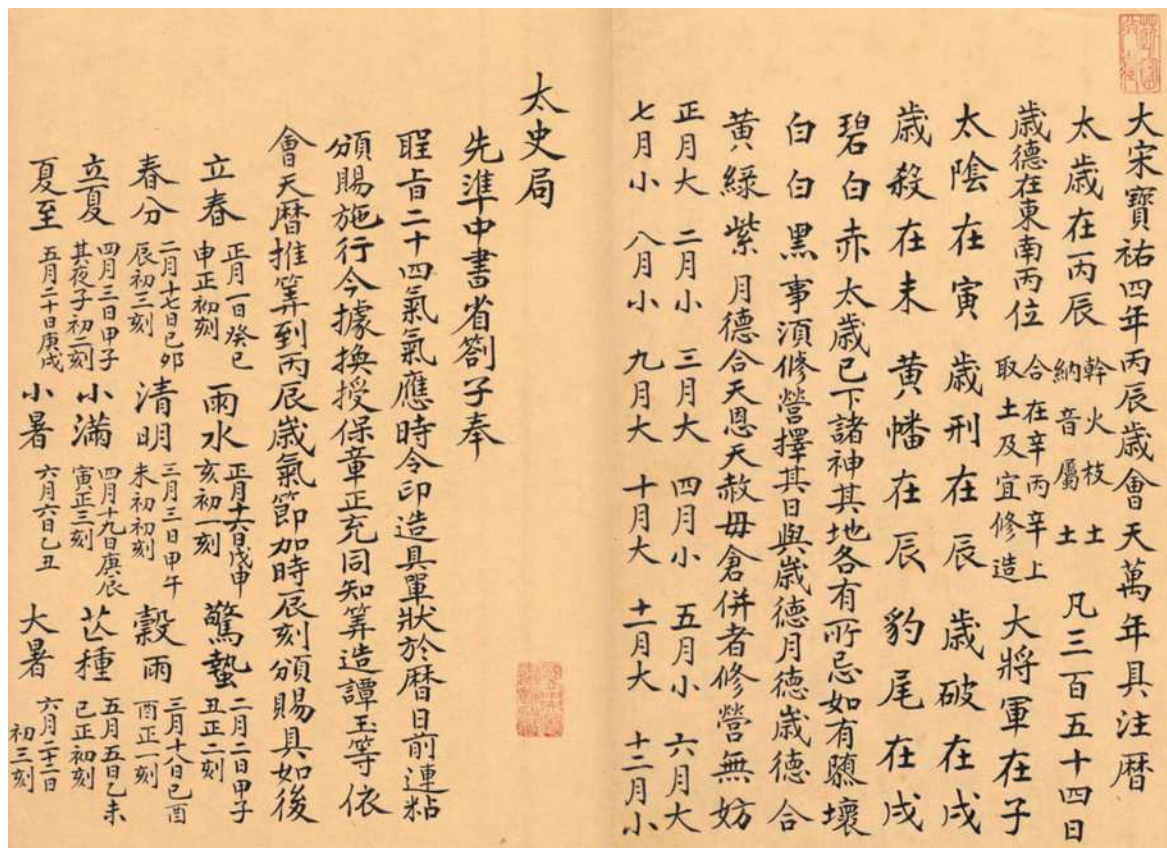 大宋寶祐四年丙辰歳會天萬年具注暦
太歳在丙辰 幹火枝土 納音屬土 凡三百五十四日
歳德在東南丙位 合在辛丙辛上 取土及宜修造 大將軍在子
太陰在寅 歳刑在辰 歳破在戌
歳殺在未 黄幡在辰 豹尾在戌
碧白赤太歳已下諸神其地各有所忌如有隳壞
白白黑事須修營擇其日與歳德月德歳德合
黄綠紫月德合天恩天赦毋倉併者修營無妨
正月大 二月小 三月大 四月小 五月小 六月大
七月小 八月小 九月大 十月大 十一月大 十二月小
太史局
先準中書省劄子奉
聖旨二十四氣氣應時令印造具單狀於暦日前連粘
頒賜施行今據換授保章正充同知筭造譚玉等依
會天暦推筭到丙辰歳氣節加時辰刻頒賜具如後
立春 正月一日癸巳 申正初刻 雨水 正月十六日戊申 亥初一刻 驚蟄 二月二日甲子 丑正二刻
春分 二月十七日己卯 辰初三刻 清明 三月三日甲午 未初初刻 穀雨 三月十八日己酉 酉正一刻
立夏 四月三日甲子 其夜子初二刻 小滿 四月十九日庚辰 寅正三刻 芒種 五月五日乙未 巳正初刻
夏至 五月二十日庚戌 小暑 六月六日乙丑 大暑 六月二十一日 初三刻